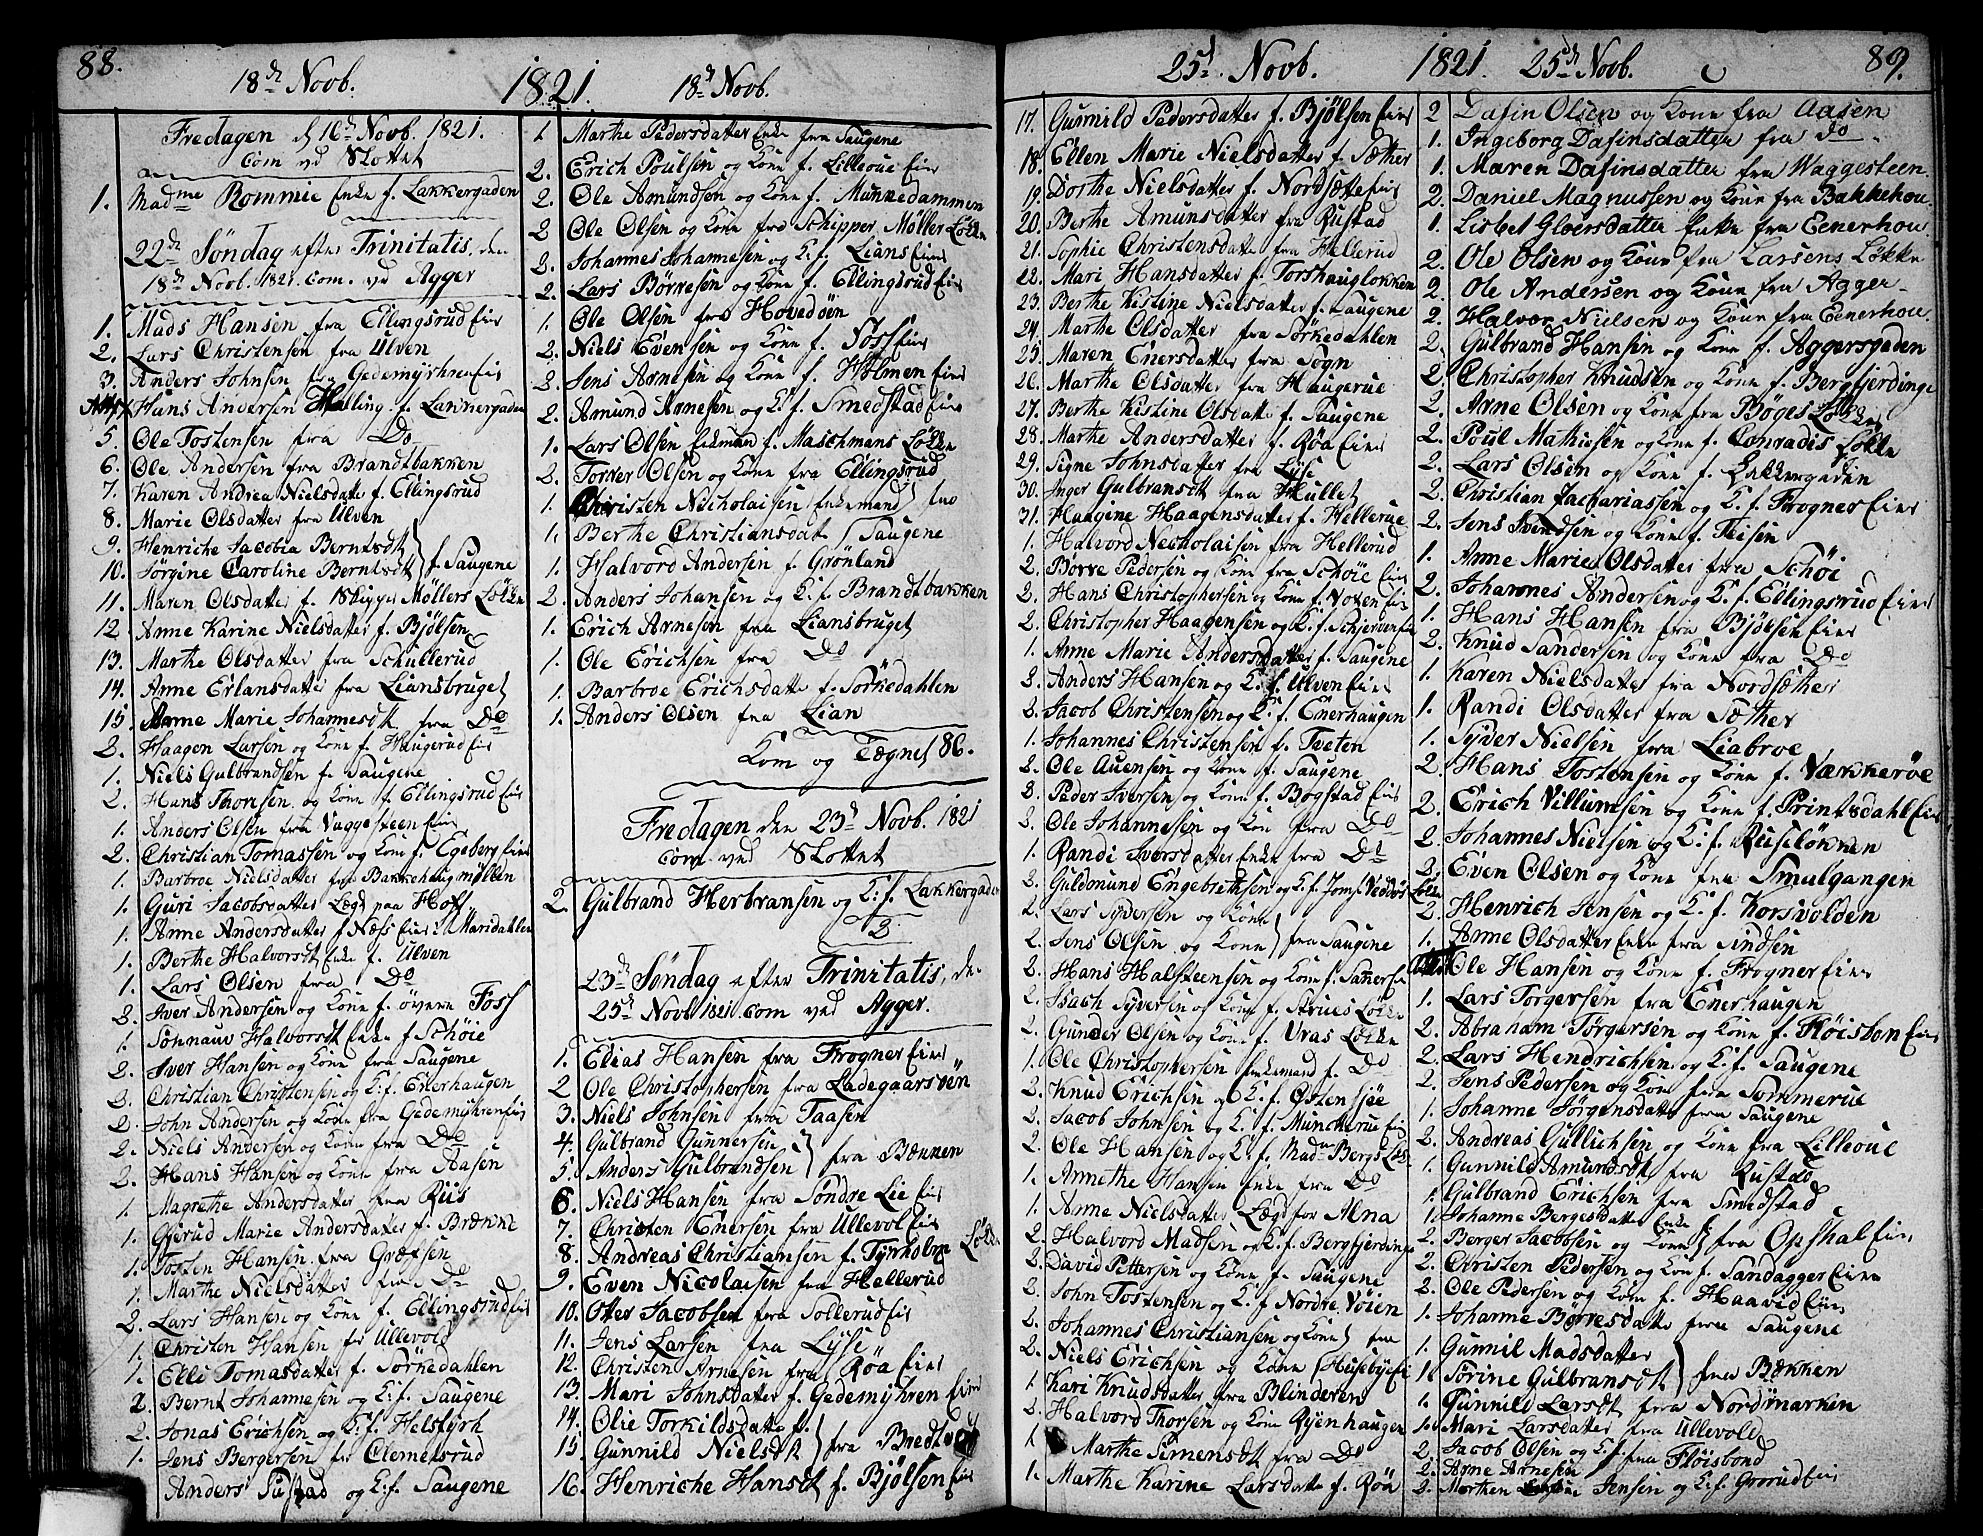 88.
18de Novb.
1821.
18de Novb.
Fredagen d 16de Novb. 1821.
Com vd Slottet
1. Madme Rommie Enke f. Lakkergaden
22de Søndag efter Trinitatis, den
18de Novb. 1821. Com. vd Agger
1. Mads Hansen fra Ellingsrud Eie
2. Lars Christensen fra Ulven
3. Anders Johnsen fra Gedemyhren Eie
Hans Andersen Halling f. Lakkergaden
5. Ole Tostensen fra Do
6. Ole Andersen fra Brandtbakken
7. Karen Andrea Nielsdatte f. Ellingsrud
8. Marie Olsdatter fra Ulven
9. Henriche Jacobia Berntsdt
10. Jørgine Caroline Berntsdt } f. Saugene
11. Maren Olsdatter f. Skipper Møllers Løkke
12. Anne Karine Nielsdatter f. Bjølsen
13. Marthe Olsdatter fra Schullerud
14. Anne Erlansdatter fra Liansbruget
15. Anne Marie Johannesdt fra Do
2. Haagen Larsen og Kone f. Haugerud Eie
1. Niels Gulbrandsen f. Saugene
2. Hans Thorsen og Kone f. Ellingsrud Eie
1. Anders Olsen fra Vaggesteen Eie
2. Christian Tomassen og Kone f. Egeberg Eie
1. Barbroe Nielsdatter fra Bakkehaugmøllen
1. Guri Jacobsdatter Lægd paa Hoff
1. Anne Andersdatter f Næss Eie i Maridahlen
1. Berthe Halvorsdt Enke f. Ulven
1. Lars Olsen fra Do
2. Iver Andersen og Kone f. øvere Foss
1. Sønnauv Halvorsdt Enke f Schøie
2. Iver Hansen og Kone fra Saugene
2. Christian Christensen og K: f. Enerhaugen
2. John Andersen og Kone fra Gedemyhren Eie
2. Niels Andersen og Kone fra Do
2. Hans Hansen og Kone fra Aasen
1. Magrethe Andersdatter fra Riis
1. Gjerud Marie Andersdatter f. Brænne
1. Tosten Hansen fra Græfsen
1. Marthe Nielsdatter fra Do
2. Lars Hansen og Kone f. Ellingsrud Eie
1. Christen Hansen fr Ullevold
1. Elli Tomasdatter f. Sørkedahlen
2. Bernt Johannesen og K: f. Saugene
2. Jonas Erichsen og K: f. Helsfyrh
1. Jens Bergersen fr Clemetsrud
Anders og K: f. Saugene
1 Marthe Pedersdatter Enke fra Saugene
2. Erich Poulsen og Kone f. Lilleoue Eie
2. Ole Amundsen og Kone f. Munkedammen
2 Ole Olsen og Kone fra Schipper Møller Løkke
2. Johannes Johannesen og K: f. Lians Eie
2. Lars Børresen og Kone f. Ellingsrud Eie
1. Ole Olsen fra Hovedøen
2. Niels Evensen og Kone f. Foss Eie
2. Jens Arnesen og Kone f. Holmen Eie
2. Amund Arnesen og K: f. Smedstad Eie
1. Lars Olsen Enkemand f. Maschmans Løkke
2. Torver Olsen og Kone fra Ellingsrud
1. Christen Nicholaisen Enkemand } fra
1. Berthe Christiansdat } Saugene
1. Halvord Andersen f. Grønland
2. Anders Johansen og K: f. Brandtbakken
1. Erich Arnesen fra Liansbruget
1. Ole Erichsen fra Do
1. Barbroe Erichsdatte f. Sørkedahlen
1. Anders Olsen fra Lian
Kom og Tægnet 86.
Fredagen den 23de Novb. 1821
Com. ved Slottet
2. Gulbrand Herbransen og K: f. Lakkergaden
2.
23de Søndag efter Trinitatis, den
25de Novb 1821. Com ved Agger.
1. Elias Hansen fra Frogner Eie
2 Ole Christophersen fra Ladegaarsøen
3. Niels Johnsen fraa Taasen
4. Gulbrand Gunnersen
5. Anders Gulbrandsen } fra Bænken
6. Niels Hansen fra Søndre Lie Eie
7. Christen Enersen fra Ullevol Eie
8. Andreas Christiansen f. Tyrholm Løkke
9. Even Nicolaisen fra Hellerud
10. Otter Jacobsen fra Sollerud Eie
11. Jens Larsen fra Lyse
12. Christen Arnesen fra Røa Eie
13. Mari Johnsdatter f. Gedemyhren Eie
14. Olie Torkildsdatte f.
15 Gunnild Nielsdt } fra Bredtvedt
16. Henriche Hansdt f. Bjølsen Eie
25de Novb.
1821.
25de Novb.
89.
17. Gunnild Pedersdatter f. Bjølsen Eie
18. Ellen Marie Nielsdatter f. Sæther
19. Dorthe Nielsdatter f. Nordsætter Eie
20. Berthe Amunsdatter fra Rustad
21. Sophie Christensdatte fra Hellerud
22. Mari Hansdatter f. Torshaugløkken
23. Berthe Kistine Nielsdatter f. Saugene
24. Marthe Olsdatter fra Sørkedahlen
25. Maren Enersdatter fra Sogn
26. Marthe Olsdatter fra Haugerue
27. Berthe Kistine Olsdatte f. Saugene
28. Marthe Andersdatter f. Røa Eie
29. Signe Johnsdatter fra Lyse
30. Inger Gulbransdt fra Hullet
31. Haagine Haagensdatter f. Hellerue
1. Halvord Neckolaisen fra Hellerud
2. Børre Pedersen og Kone fra Schøie Eie
2. Hans Christophersen og Kone f. Voxen Eie
2. Christopher Haagensen og K: f. Schjerven Eie
1. Anne Marie Andersdatter f. Saugene
2. Anders Hansen og K. f. Ulven Eie
2. Jacob Christensen og K: f. Enerhaugen
1. Johannes Christensen f. Tveten
2. Ole Auensen og Kone f. Saugene
2. Peder Iversen og Kone f. Bogstad Eie
2. Ole Johannesen og Kone fra Do
1. Randi Iversdatter Enke fra Do
2. Guldmund Engebrethsen og K: f. Jomf. Løkke
2. Lars Syversen og Kone
2. Jens Olsen og Kone } fra Saugene
2. Hans Halsteensen og Kone f.
2. Isach Syversen og Kone f. Strues Løkke
2. Gunder Olsen og Kone f. Uras Løkke
1. Ole Christophersen Enkemand f. Do
2. Knud Erichsen og K: f. Østensjøe
2. Jacob Johnsen og K: f. Munckerue Eie
2. Ole Hansen og K: f. Madm Bergs Løk
1. Annethe Hansen Enke fra Do
1. Anne Nielsdatter Lægd for Alna
2. Halvord Madsen og K: f. Bergfjerdinge
2. David Pettersen og Kone f. Saugene
2. John Tostensen og K: f Nordre Vøien
2. Johannes Christiansen og Kone } fra
2. Niels Erichsen og Kone } Husebye Ei
1 Kari Knudsdatter fra Blinderen
2. Halvord Thorsen og Kone Ryenhaugen
1 Marthe Simensdt fra Do
1. Marthe Karine Larsdatte f. Røa
2 Dafin Olsen og Kone fra Aasen
1. Ingeborg Dafinsdatter fra do
1. Maren Dafinsdatter fra Waggesteen.
2. Daniel Magnussen og Kone fra Bakkehou
1. Lisbet Gloersdatter Enke fra Eenerhou
2. Ole Olsen og Kone fra Larsens Løkke
2. Ole Andersen og Kone fra Agger
2. Halvor Nielsen og Kone fra Eenerhou
2. Gulbrand Hansen og Kone f. Aggersgaden
2. Christopher Knudsen og Kone f. Bergfjerdinge
2. Arne Olsen og Kone fra Bøges Løkke
2. Poul Mathiesen og Kone f. Conradis Løkke
2. Lars Olsen og Kone f. Lakkergaden
2. Christian Zachariassen og K. f. Frogner Eie
2. Jens Svendsen og Kone f. Teisen
1. Anne Marie Olsdatter fra Schøi
2. Johannes Andersen og K: f. Ellingsrud Eie
1. Hans Hansen fra Bjølsen Eie
2. Knud Sandersen og Kone fra Do
1. Karen Nielsdatter fra Nordsæther
1. Randi Olsdatter fra Sæther
1. Syver Nielsen fra Liabroe
2. Hans Tostensen og Kone f. Vækkerøe
2. Erich Villumsen og Kone f. Printsdahl Eie
2. Johannes Nielsen og K: f. Ruseløkken
2. Even Olsen og Kone fra Smulgangen
2. Henrich Jensen og K: f. Korsvolden
1. Anne Olsdatter Enke fra Sindsen
Ole Hansen og Kone f. Frogner Eie
1. Lars Torgersen fra Enerhaugen
2. Abraham Tørgersen og Kone f. Fløisbon Eie
2. Lars Hendrichsen og K: f. Saugene
2. Jens Pedersen og Kone fra Sommerue
1. Johanne Jørgensdatte fra Saugene
2. Andreas Gullichsen og Kone fra Lilleoue
1. Gunnild Amundsdt fra Rustad
1. Gulbrand Erichsen fra Smedstad
1. Johanne Bergesdatter Enke
2. Berger Jacobsen og Kone } fra Opshal Eie
2. Christen Pedersen og Kone f. Sandagger Eie
2. Ole Pedersen og Kone f. Haavid Eie
1. Johanne Børresdatte fraa Saugene
1. Gunnil Madsdatter
1. Torine Gulbransdt } fra Bækken
1. Gunnild Larsdt fra Nordmarken
1. Mari Larsdatter fra Ullevold
2. Jacob Olsen og K: f. fra Fløisbond
2. Arne Arnesen
2. Morthen Jensen og K: f. Grorud Eie